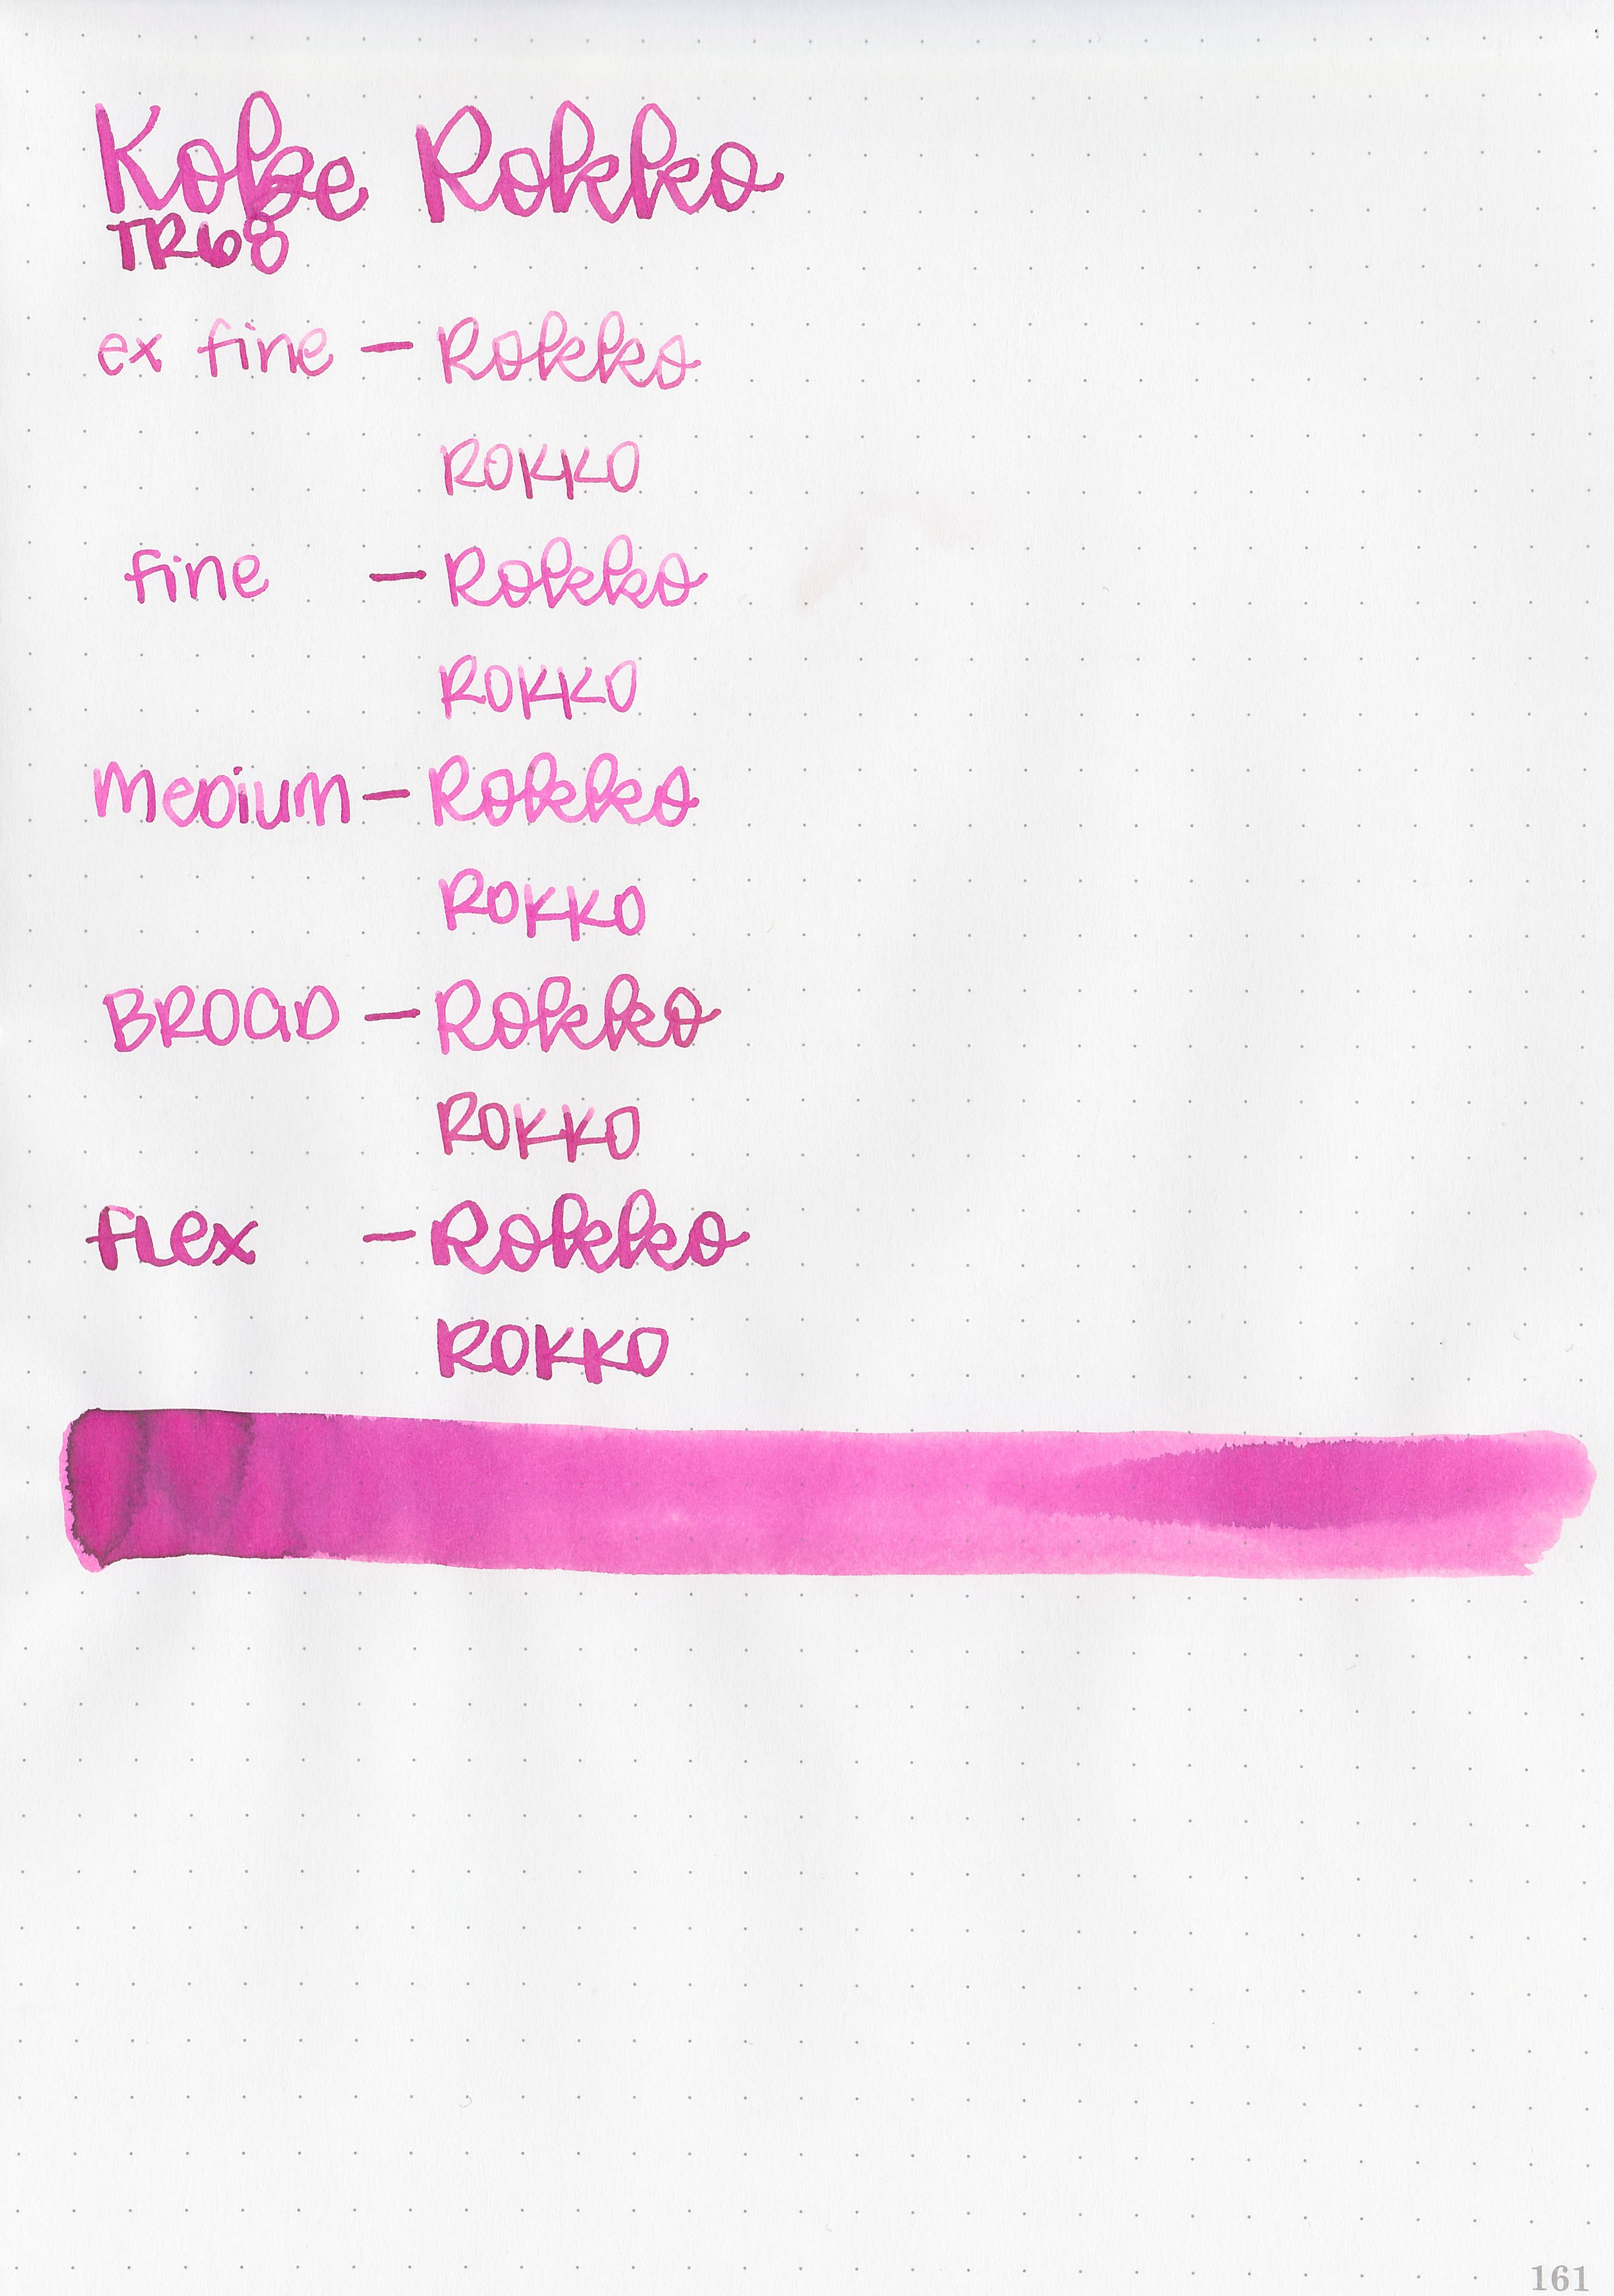 Kobe Rokko
TR68
ex fine – Rokko
ROKKO
fine – Rokko
ROKKO
Medium – Rokko
ROKKO
BROAD – Rokko
ROKKO
flex – Rokko
ROKKO
161